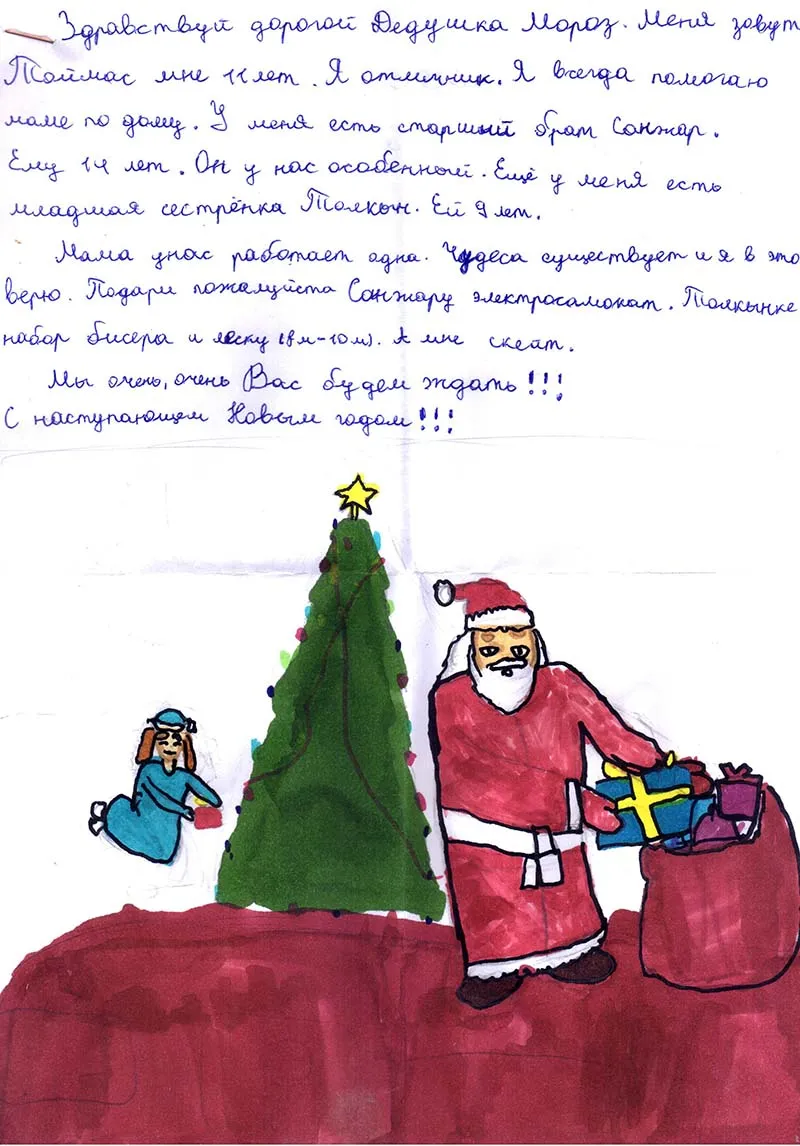 Здравствуй дорогой Дедушка Мороз. Меня зовут
Тоймас мне 11 лет. Я отличник. Я всегда помогаю
маме по дому. У меня есть старший брат Санжар.
Ему 14 лет. Он у нас особенный. Ещё у меня есть
младшая сестрёнка Толкын. Ей 9 лет.
Мама унас работает одна. Чудеса существует и я в это
верю. Подари пожалуйста Санжару электросамокат. Толкынке
набор бисера и леску (8м-10м). А мне скейт.
Мы очень, очень Вас будем ждать!!!
С наступающем Новым годом!!!